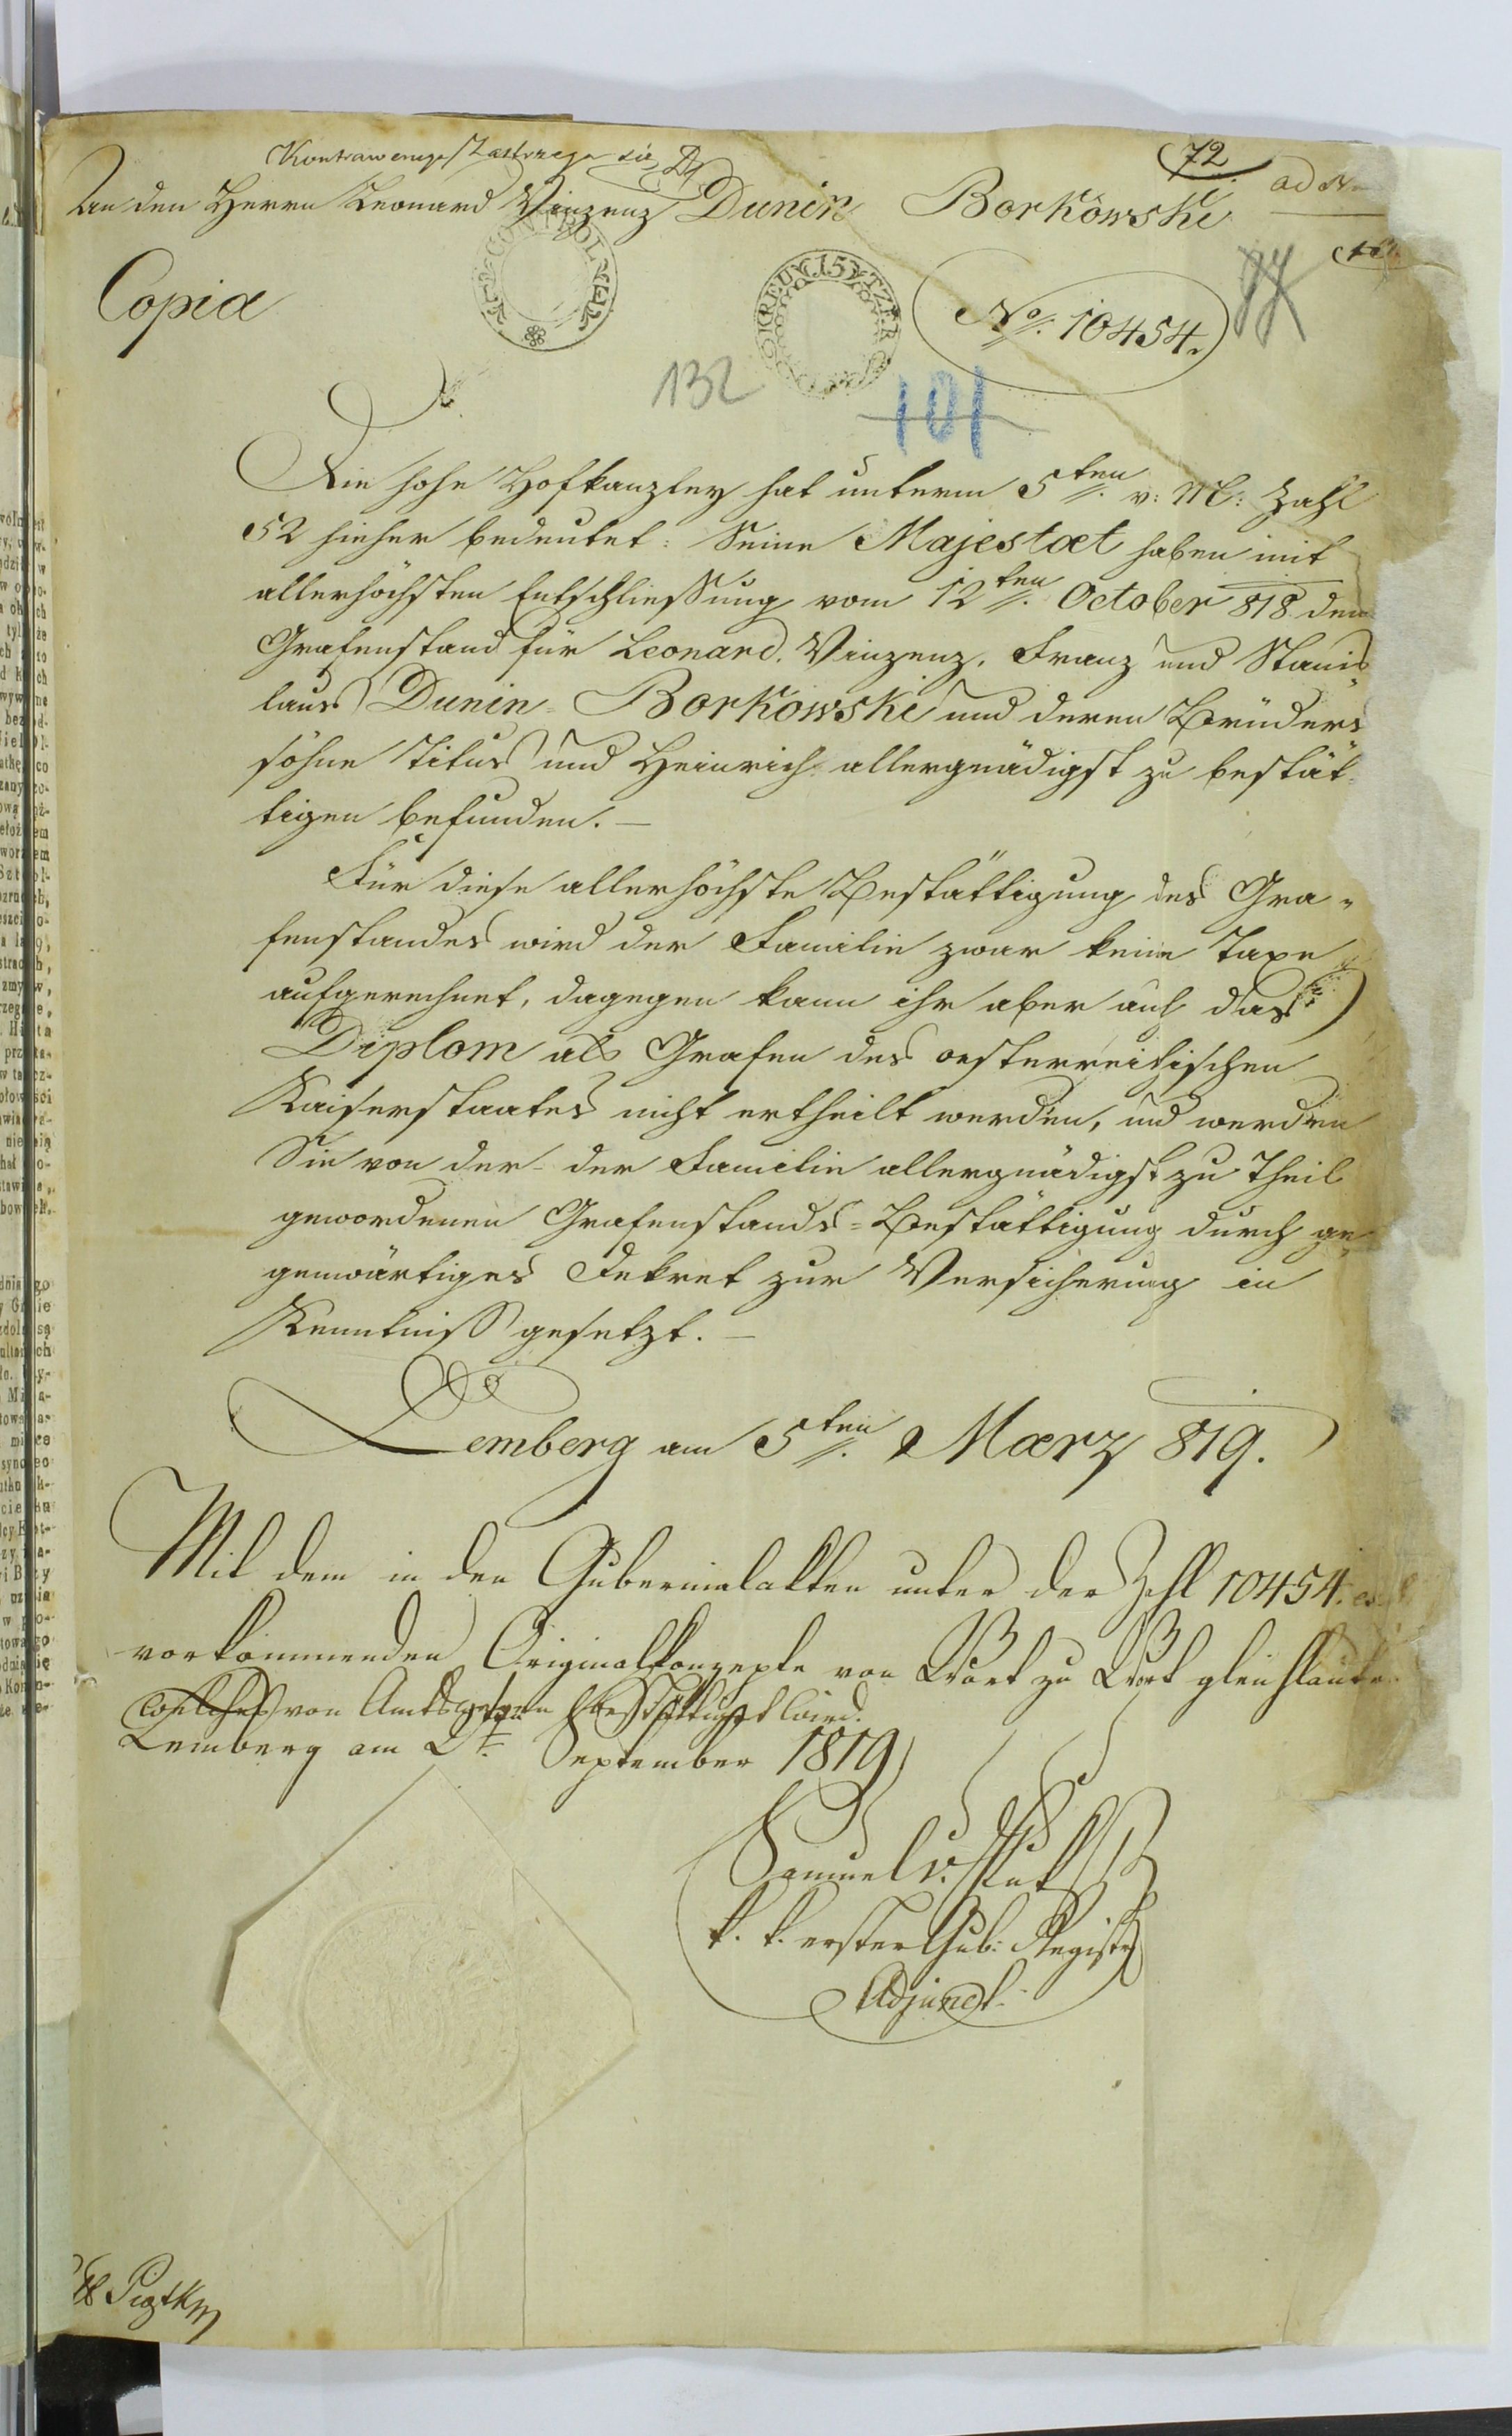 Kontrawenuje Zastrzega się
72
ad N
An den Herrn Leonard Vinzenz Dunin Borkowski
CONTROL
Copia
15 KREUTZER
No. 10454.
132
101
Die hohe Hofkanzley hat unterm 5ten v: M: Zahl
52 hieher bedeutet: Seine Majestæt haben mit
allerhöchsten Entschließung vom 12ten October 818 den
Grafenstand für Leonard, Vinzenz, Franz und Stanis
laus Dunin-Borkowski und deren Bruders
söhne Titus und Heinrich allergnädigst zu bestät-
tigen befunden. —
Für diese allerhöchste Bestättigung des Gra-
fenstandes wird der Familie zwar keine Taxe
aufgerechnet, dagegen kann ihr aber auch das
Diplom als Grafen des oesterreichischen
Kaiserstaates nicht ertheilt werden, und werden
Sie von der der Familie allergnädigst zu Theil
gewordenen Grafenstands-Bestättigung durch ge-
genwärtiges Dekret zur Versicherung in
Kenntniß gesetzt. —
Lemberg am 5ten Mærz 819.
Mit dem in den Gubernialakten unter der Zahl 10454
vorkommenden Originalkonzepte von Wort zu Wort gleichlaute
welches von Amtswegen bestättigt wird.
Lemberg am 2t September 1819
Samuel v.
k. k. erster Gub: Registr
Adjunct